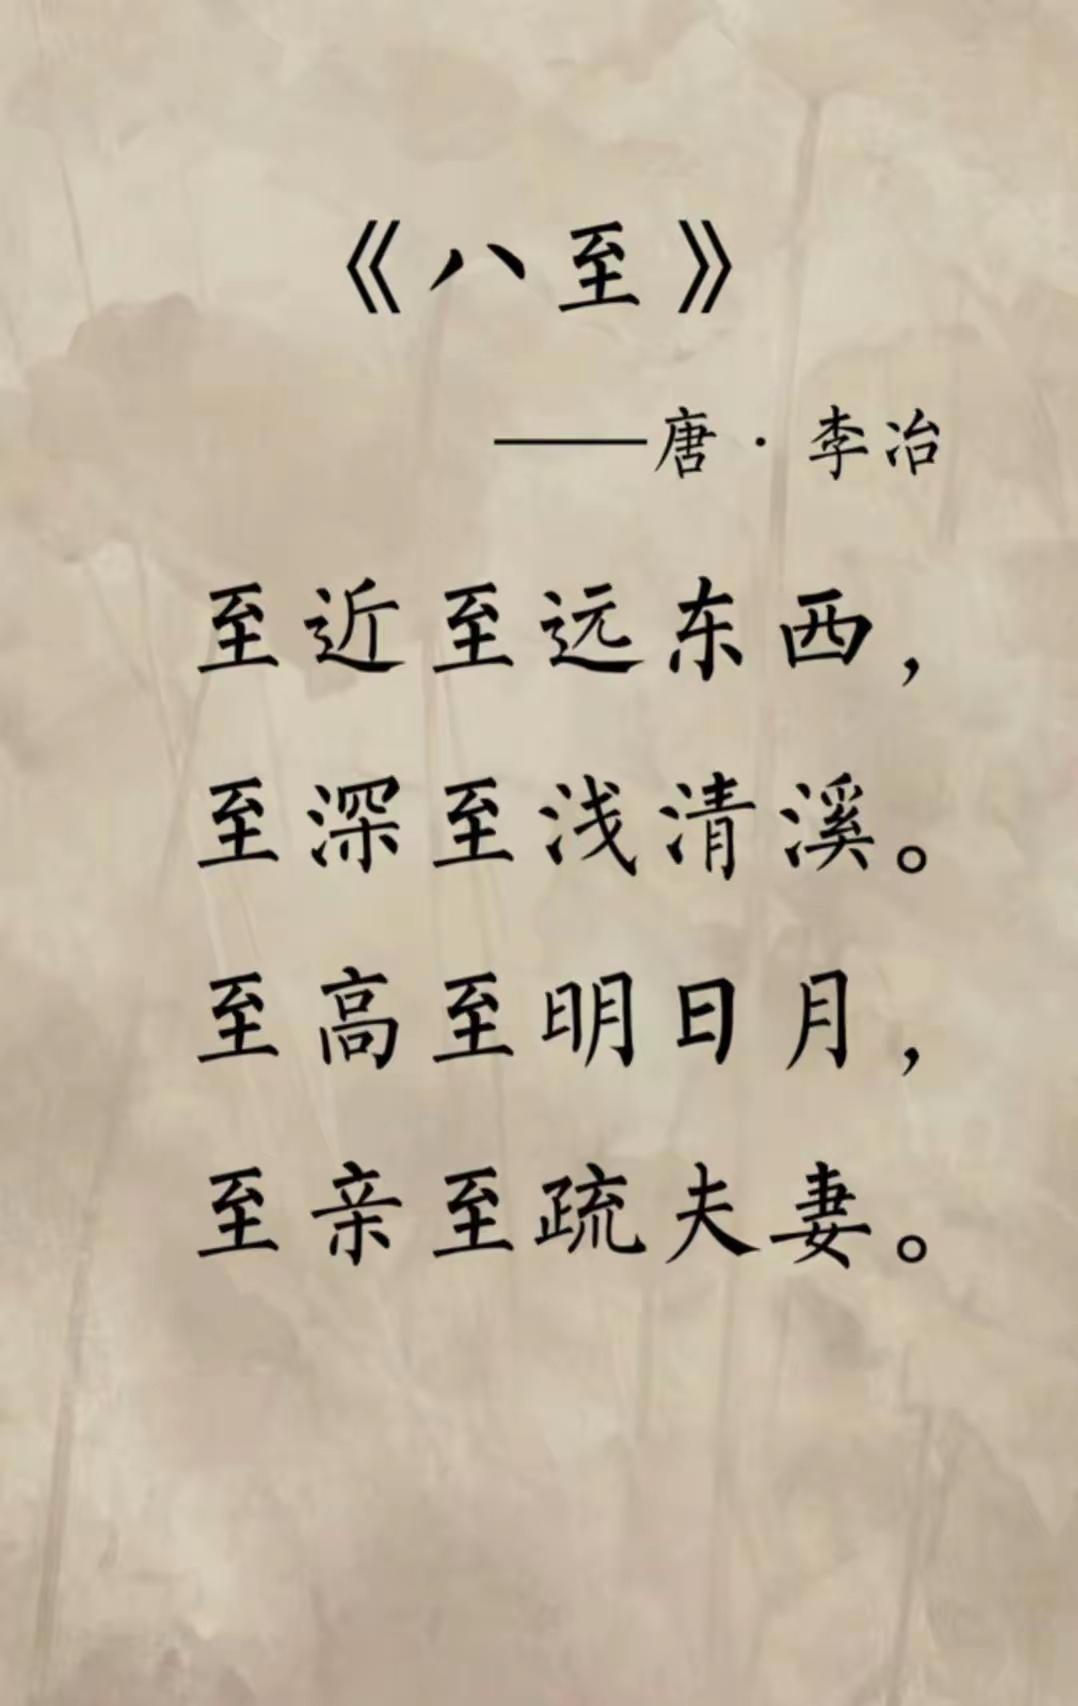 《八至》
——唐·李冶
至近至远东西，
至深至浅清溪。
至高至明日月，
至亲至疏夫妻。